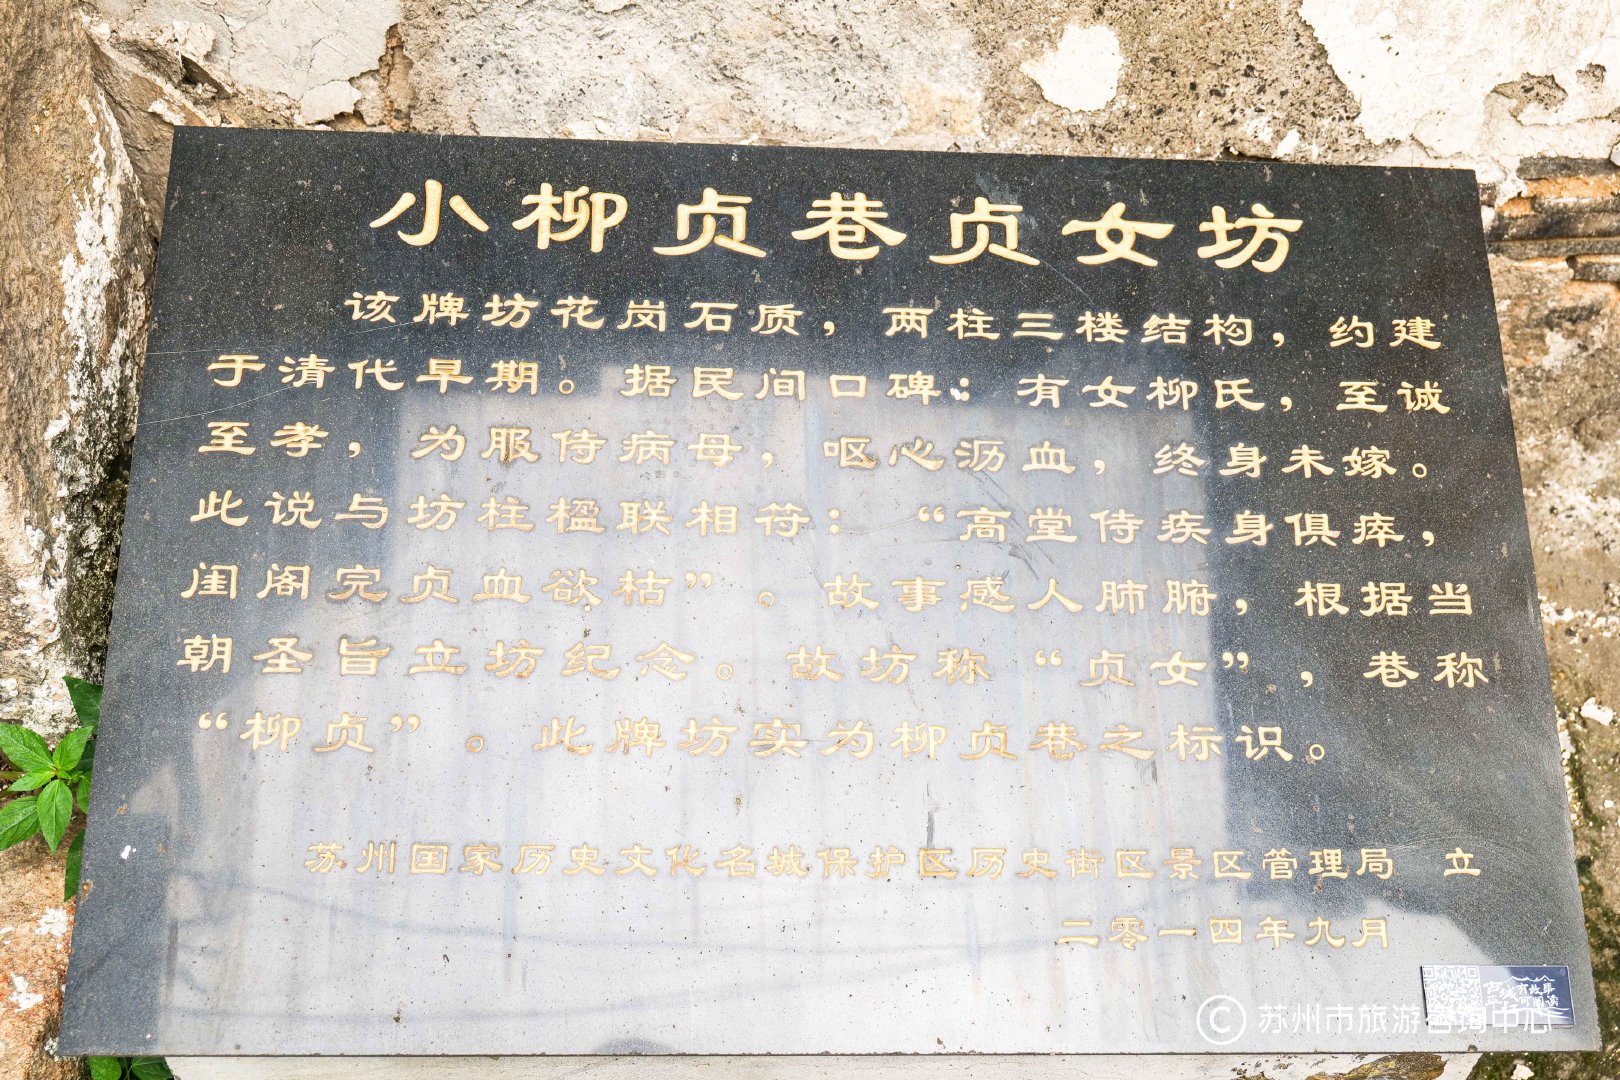 小柳贞巷贞女坊
该牌坊花岗石质，两柱三楼结构，约建
于清代早期。据民间口碑：有女柳氏，至诚
至孝，为服侍病母，呕心沥血，终身未嫁。
此说与坊柱楹联相符：“高堂侍疾身俱瘁，
闺阁完贞血欲枯”。故事感人肺腑，根据当
朝圣旨立坊纪念。故坊称“贞女”，巷称
“柳贞”。此牌坊实为柳贞巷之标识。
苏州国家历史文化名城保护区历史街区景区管理局 立
二零一四年九月
古城有故事
平江可阅读
©苏州市旅游咨询中心